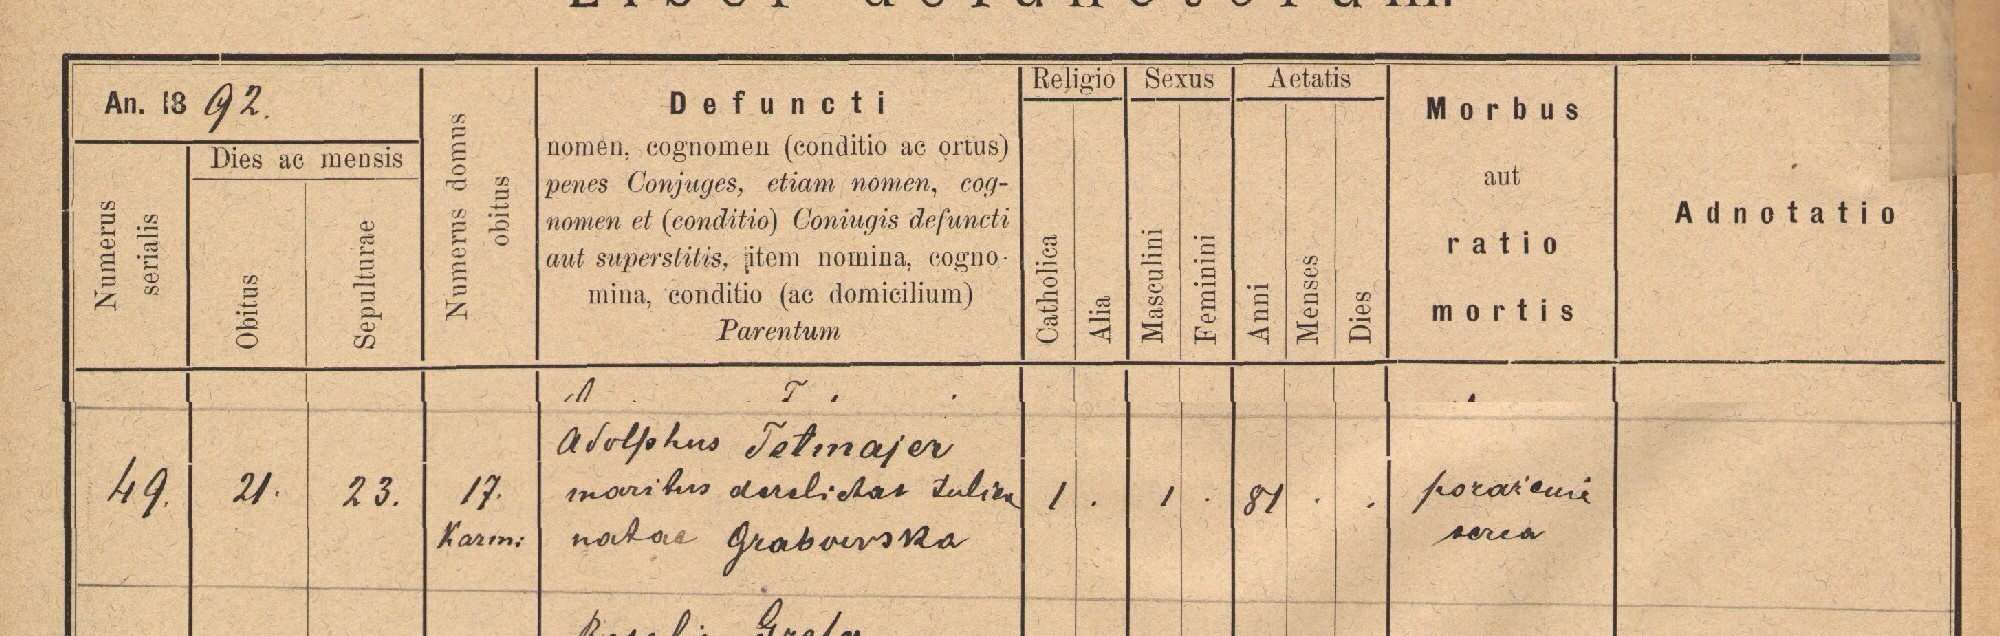 Liber defunctorum.
An. 1892.
Dies ac mensis
Numerus serialis
Obitus
Sepulturae
Numerus domus obitus
Defuncti
nomen, cognomen (conditio ac ortus)
penes Conjuges, etiam nomen, cog-
nomen et (conditio) Coniugis defuncti
aut superstitis, item nomina, cogno-
mina, conditio (ac domicilium)
Parentum
Religio
Catholica
Alia
Sexus
Masculini
Feminini
Aetatis
Anni
Menses
Dies
Morbus
aut
ratio
mortis
Adnotatio
Adolphus Tetmajer
49. 21. 23. 17. maritus derelictae Julien 1 . 1 . 81 . . porażenie
Karm: natae Grabowska serca